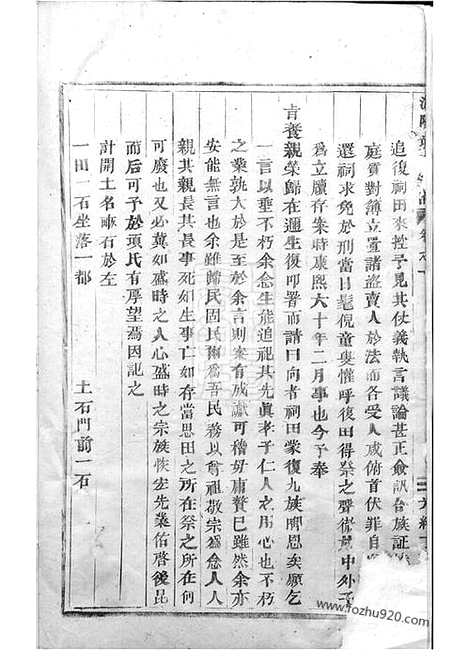 追復祠田來控予見其仗義執言議論甚正僉訊合族証
庭質對薄立置諸盜賣人於法而各受人咸俯首伏罪自
還祠求免於刑當日髦倪童叟懽呼復田得祭之聲徹
為立牘存案時康熙六十年二月事也今予奉
旨養親榮歸在邇生復叩署而請曰向者祠田蒙復九族啣恩矣願乞
一言以垂不朽余念生能追祀其先真孝子仁人之用心也不朽
之業孰大於是至於余言則案有成讞可稽毋庸贅已雖然余亦
安能無言也余雖歸民固民爾為吾民務以尊祖敬宗為念人人
親其親長其長事死如生事亡如存當思田之所在祭之所在何
可廢也又必冀如盛時之人心盛時之宗族恢宏先業佑啓後昆
而后可予於項氏有厚望焉因記之
計開土名畝石於左
一田一石坐落一都 土石門前一石
www.fozhu920.com